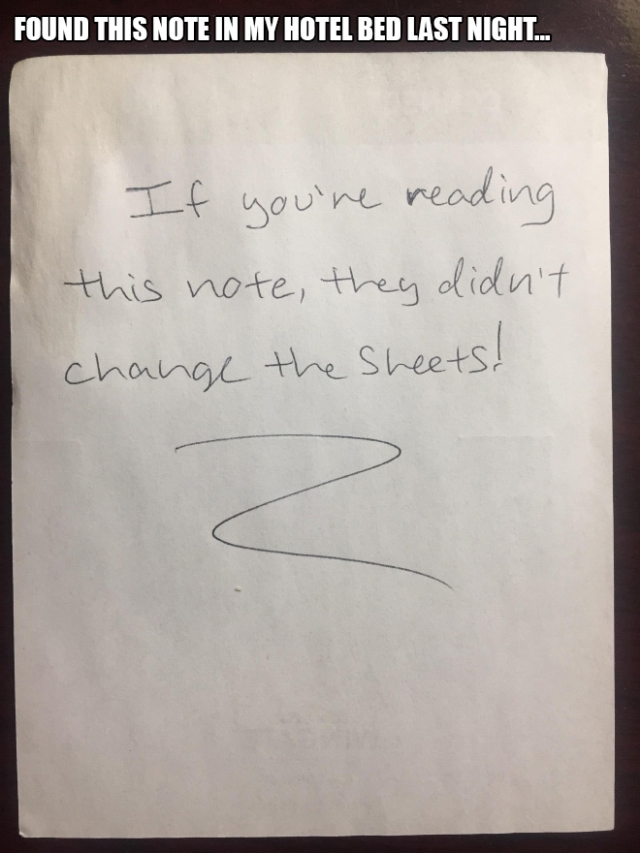 FOUND THIS NOTE IN MY HOTEL BED LAST NIGHT...
If you're reading
this note, they didn't
change the Sheets!